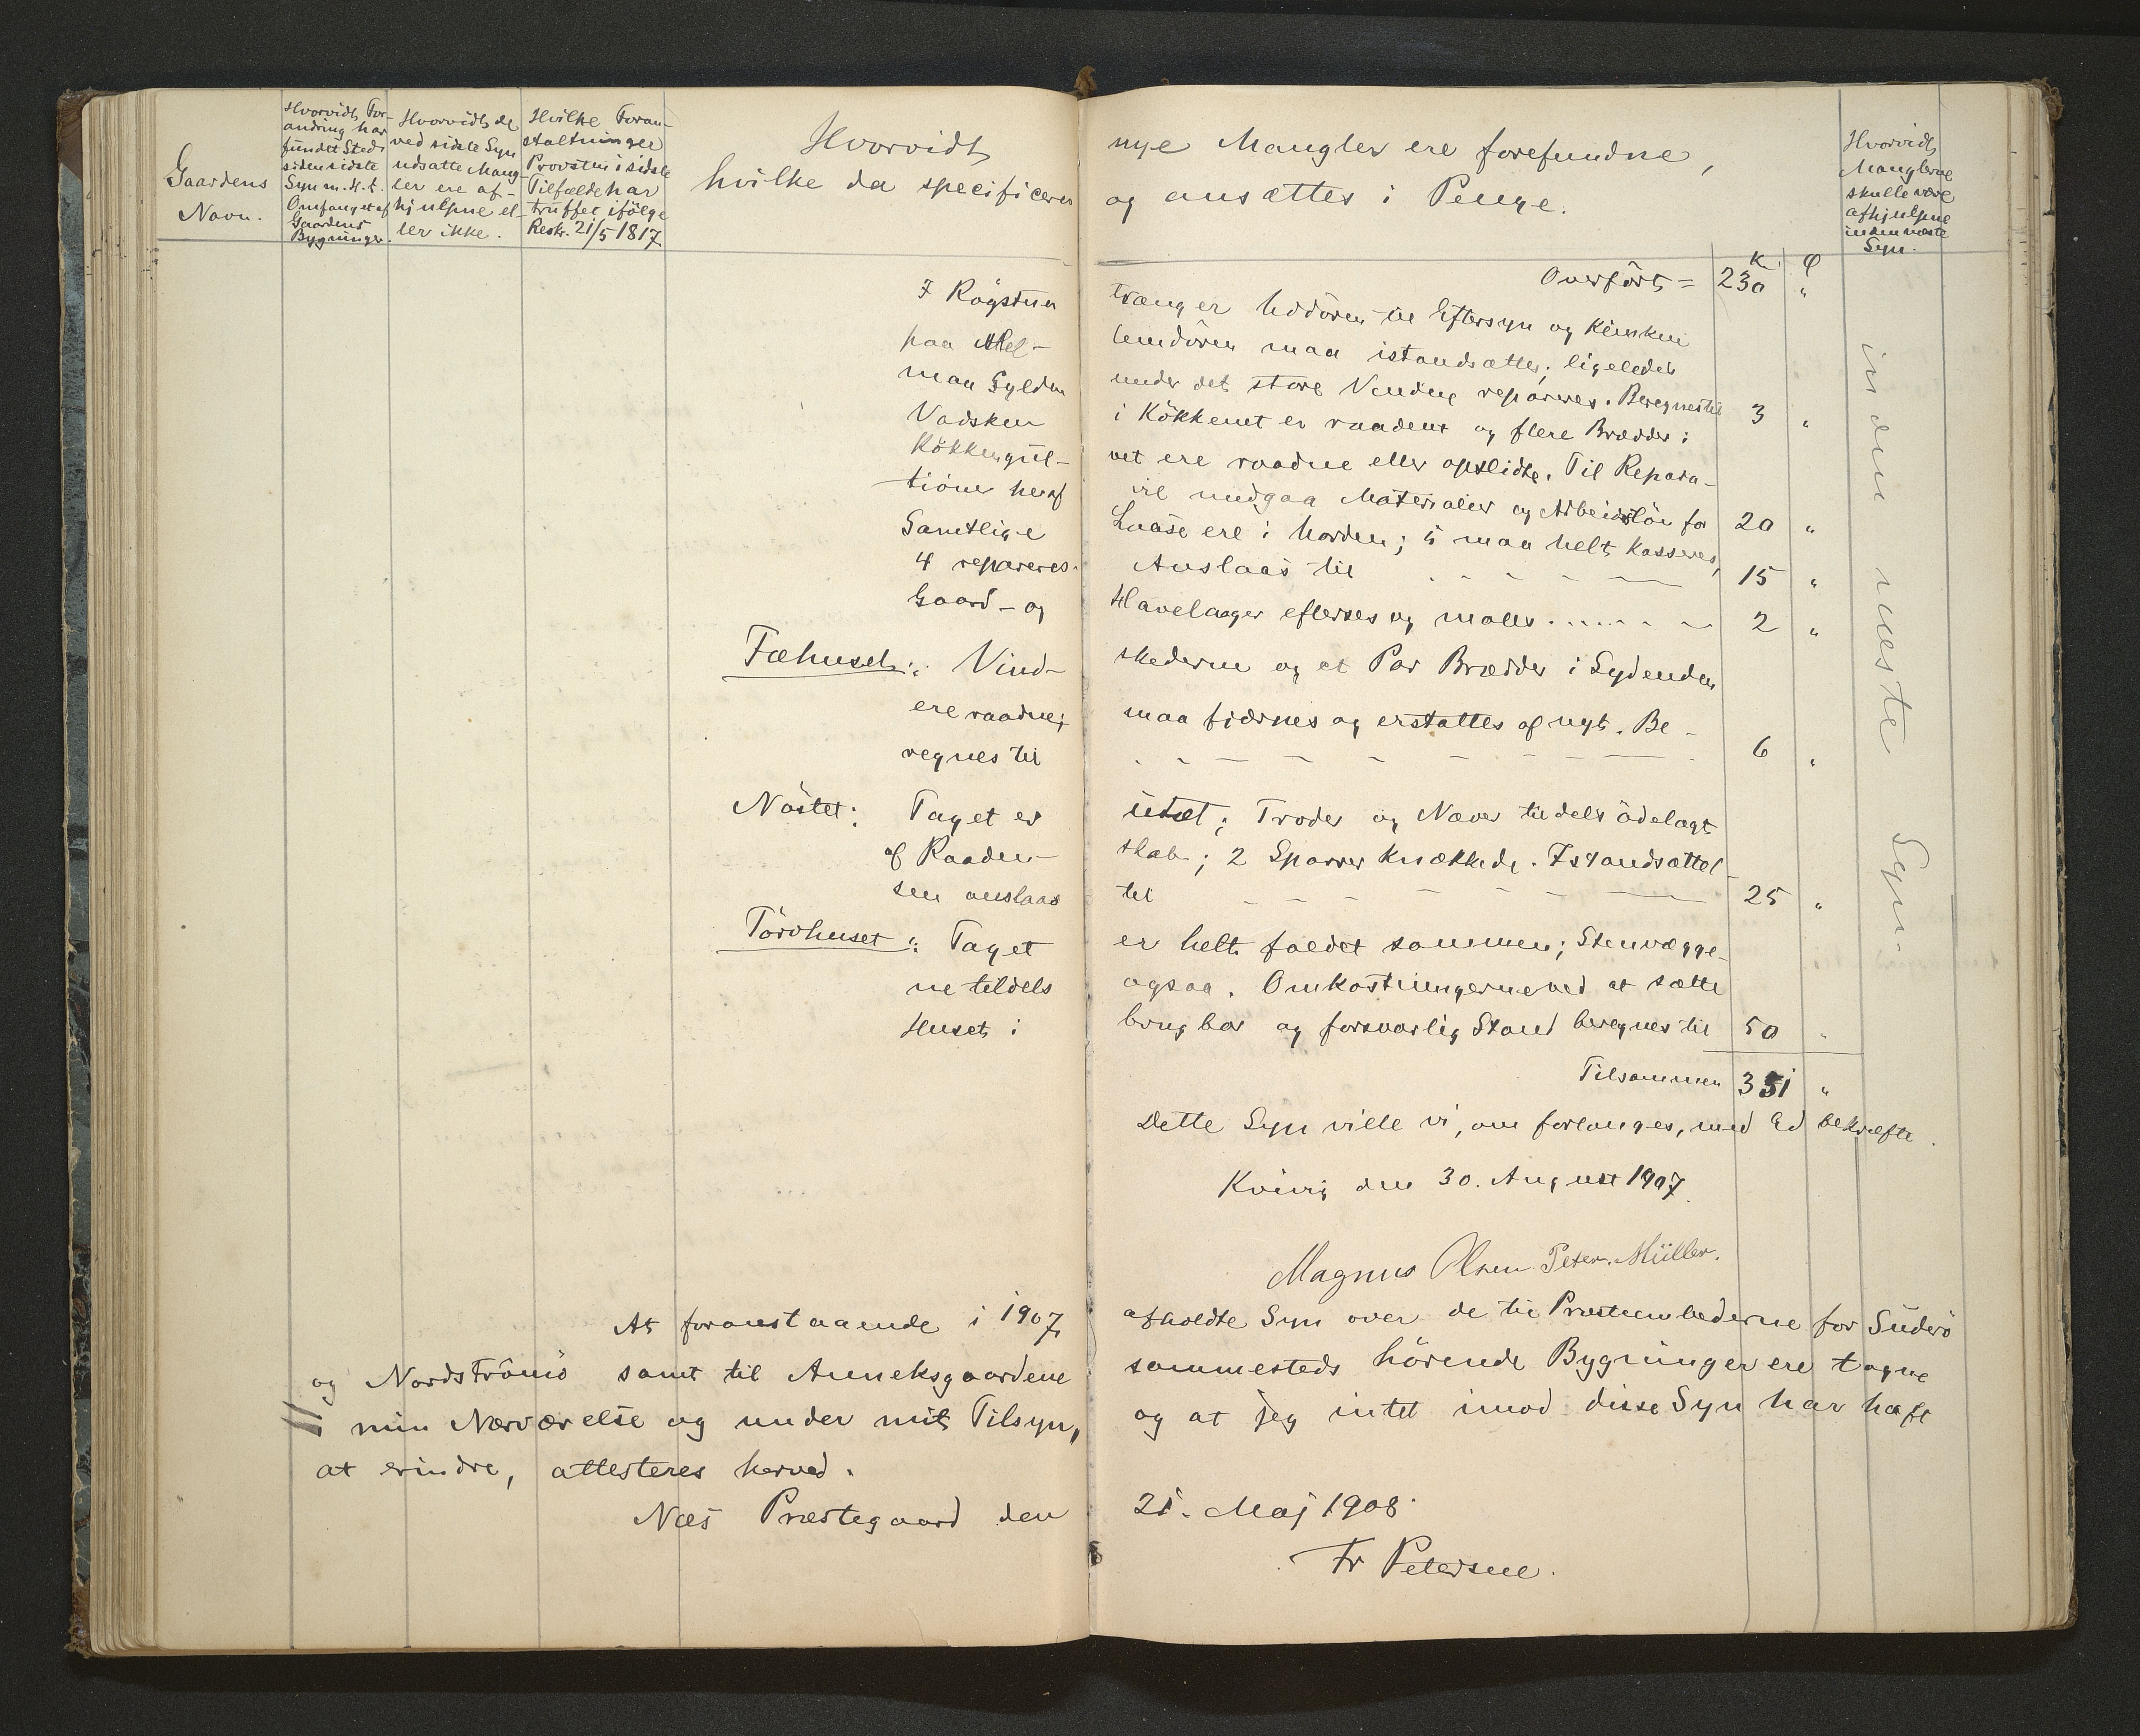 Gaardens
Navn.
Hvorvidt For-
andring har
fundet Sted
siden sidste
Syn m. H. t.
Omfanget af
Gaardens
Bygninger.
Hvorvidt de
ved sidste Syn
udsatte Mang-
ler ere af-
hjulpne el-
ler ikke.
Hvilke Foran-
staltninger
Provsten i sidste
Tilfælde har
truffet ifölge
Reskr. 21/5 1817.
Hvorvidt nye Mangler ere forefundne,
hvilke da specificeres og ansættes i Penge.
Hvorvidt
Manglerne
skulle være
afhjulpne
inden næste
Syn.
K. Ø
Overført = 230 "
I Rögstuen trænger Uddören til Eftersyn og Klinken
paa Mel- lemdören maa istandsættes; ligeledes
maa Gylden under det store Vindue repareres. Beregnes til 3 "
Vadsken i Kökkenet er raadent og flere Brædder i
Kökkengul- vet ere raadne eller opslidte. Til Repara-
tioner heraf vil medgaa Materialier og Arbeidslön for 20 "
Samtlige Laase ere i Uorden; 5 maa helt kasseres,
4 repareres. Anslaas til 15 "
Gaard- og Havelaager efterses og males 2 "
Fæhuset: Vind- skederne og et Par Brædder i Sydenden
ere raadne; maa fjærnes og erstattes af nyt. Be-
regnes til 6 "
Nöstet: Taget er utæt; Troder og Næver tildels ödelagt
af Raaden- skab; 2 Sparrer knækkede. Istandsættel-
sen anslaas til 25 "
Törvhuset: Taget er helt faldet sammen; Stenvægge-
ne tildels ogsaa. Omkostningerne ved at sætte
Huset i brugbar og forsvarlig Stand beregnes til 50 "
Tilsammen 351 "
inden næste Syn
Dette Syn ville vi, om forlanges, med Ed bekræfte.
Kvivig den 30. August 1907.
Magnus Olsen Peter Müller.
At foranstaaende i 1907 afholdte Syn over de til Præsteembederne for Suderö
og Nordströmö samt til Anneksgaardene sammesteds hörende Bygninger ere tagne
i min Nærværelse og under mit Tilsyn, og at jeg intet imod disse Syn har haft
at erindre, attesteres herved.
Næs Præstegaard den 21. Maj 1908.
Fr Petersen.